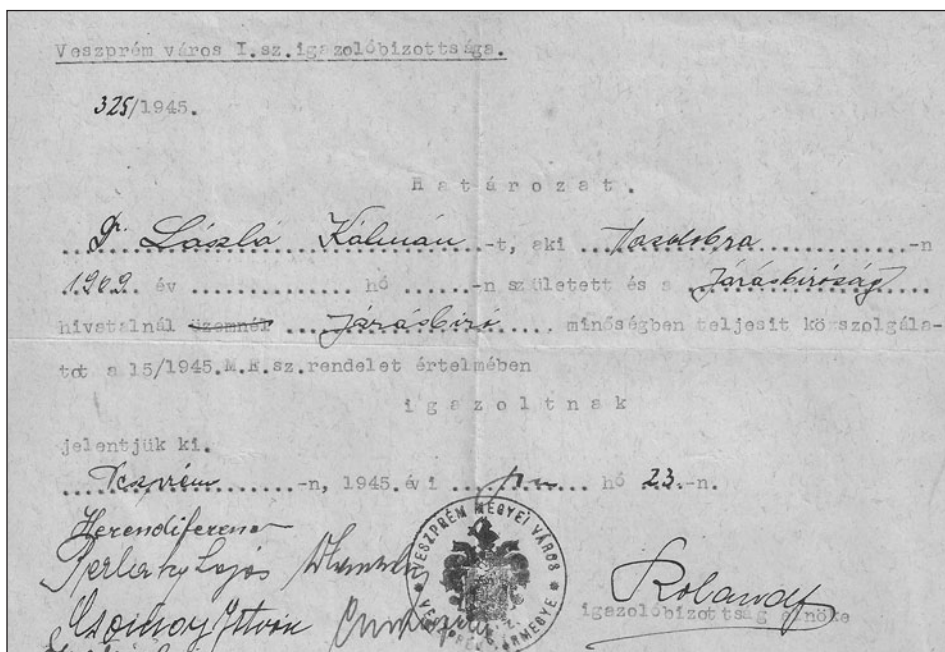 Veszprém város I.sz.igazolóbizottsága.
325/1945.
Határozat.
Dr. László Kálmán -t, aki -n
1909. év hó -n született és a Járásbíróság
hivatalnál üzemnél Járásbíró minőségben teljesit közszolgála-
tot a 15/1945.M.E.sz.rendelet értelmében
igazoltnak
jelentjük ki.
Veszprém -n, 1945.évi hó 23.-n.
Herendiferenc
Perlaky Lajos
István
Roland
igazolóbizottság elnöke
VESZPRÉM MEGYEI VÁROS
VESZPRÉM VÁRMEGYE